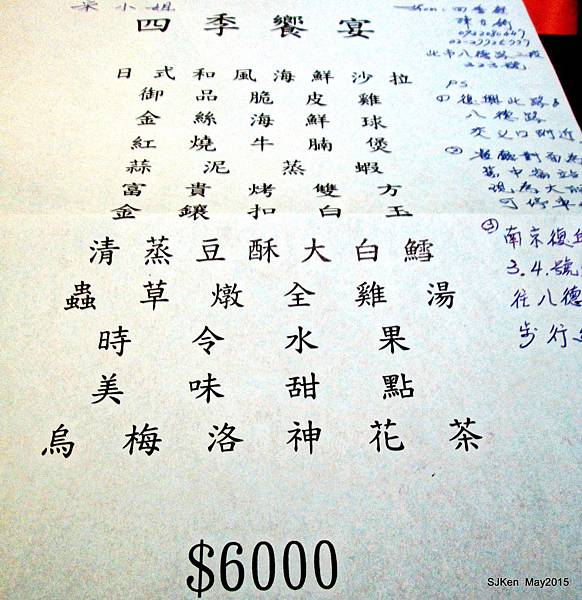 小姐
四季饗宴
日式和風海鮮沙拉
御品脆皮雞
金絲海鮮球
紅燒牛腩煲
蒜泥蒸蝦
富貴烤雙方
金鑲扣白玉
清蒸豆酥大白鱈
蟲草燉全雞湯
時令水果
美味甜點
烏梅洛神花茶
$6000
北市八德路二段
PS
① 復興北路&
八德路
交叉口附近
②
③ 南京復興
3.4.號
往八德
步行
SJKen May2015